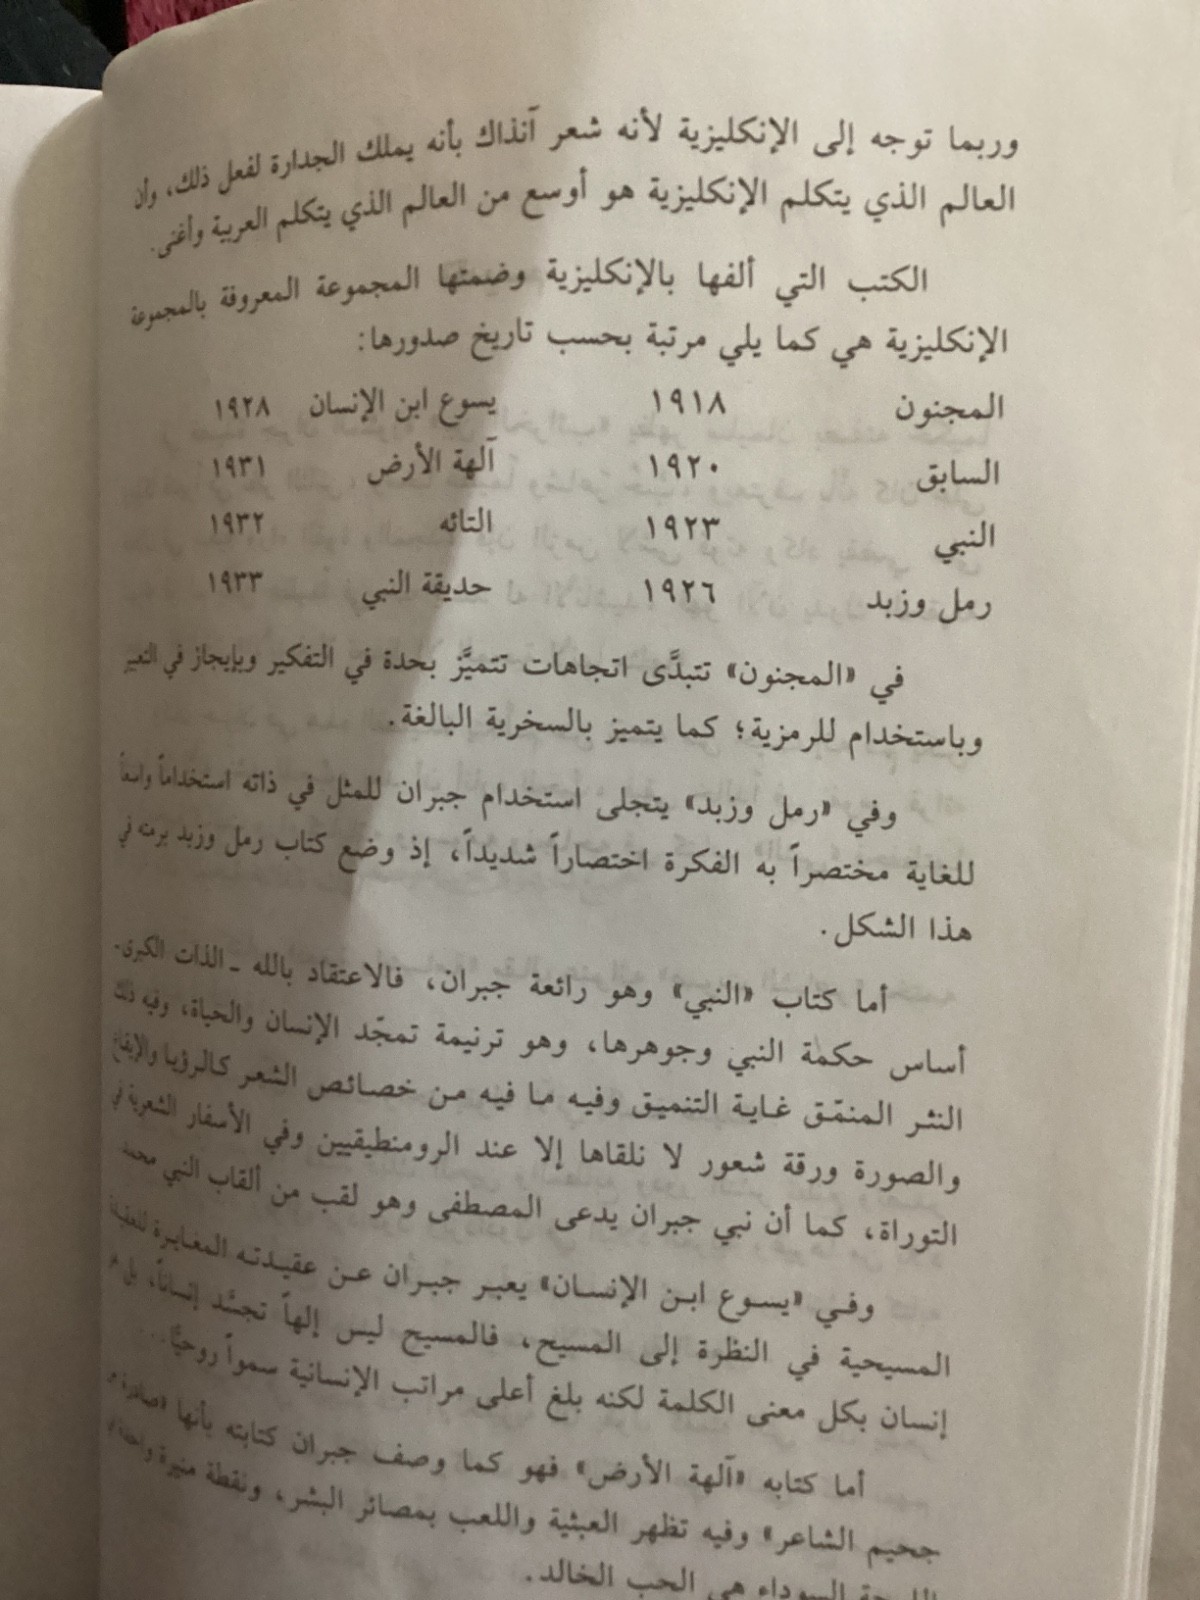 وربما توجه إلى الإنكليزية لأنه شعر آنذاك بأنه يملك الجدارة لفعل ذلك، وأن
العالم الذي يتكلم الإنكليزية هو أوسع من العالم الذي يتكلم العربية وأغنى.
الكتب التي ألفها بالإنكليزية وضمتها المجموعة المعروفة بالمجموعة
الإنكليزية هي كما يلي مرتبة بحسب تاريخ صدورها:
المجنون ١٩١٨ يسوع ابن الإنسان ١٩٢٨
السابق ١٩٢٠ آلهة الأرض ١٩٣١
النبي ١٩٢٣ التائه ١٩٣٢
رمل وزبد ١٩٢٦ حديقة النبي ١٩٣٣
في «المجنون» تتبدَّى اتجاهات تتميَّز بحدة في التفكير وبإيجاز في التعبير
وباستخدام للرمزية؛ كما يتميز بالسخرية البالغة.
وفي «رمل وزبد» يتجلى استخدام جبران للمثل في ذاته استخداماً واسعاً
للغاية مختصراً به الفكرة اختصاراً شديداً، إذ وضع كتاب رمل وزبد برمته في
هذا الشكل.
أما كتاب «النبي» وهو رائعة جبران، فالاعتقاد بالله ـ الذات الكبرى ـ
أساس حكمة النبي وجوهرها، وهو ترنيمة تمجّد الإنسان والحياة، وفيه ذلك
النثر المنمّق غاية التنميق وفيه ما فيه من خصائص الشعر كالرؤيا والإيقاع
والصورة ورقة شعور لا نلقاها إلا عند الرومنطيقيين وفي الأسفار الشعرية في
التوراة، كما أن نبي جبران يدعى المصطفى وهو لقب من ألقاب النبي محمد
وفي «يسوع ابن الإنسان» يعبر جبران عن عقيدته المغايرة للعقيدة
المسيحية في النظرة إلى المسيح، فالمسيح ليس إلهاً تجسَّد إنساناً، بل هو
إنسان بكل معنى الكلمة لكنه بلغ أعلى مراتب الإنسانية سمواً روحيًّا...
أما كتابه «آلهة الأرض» فهو كما وصف جبران كتابته بأنها «صادرة
جحيم الشاعر» وفيه تظهر العبثية واللعب بمصائر البشر، ونقطة منيرة واحدة
السوداء هي الحب الخالد.